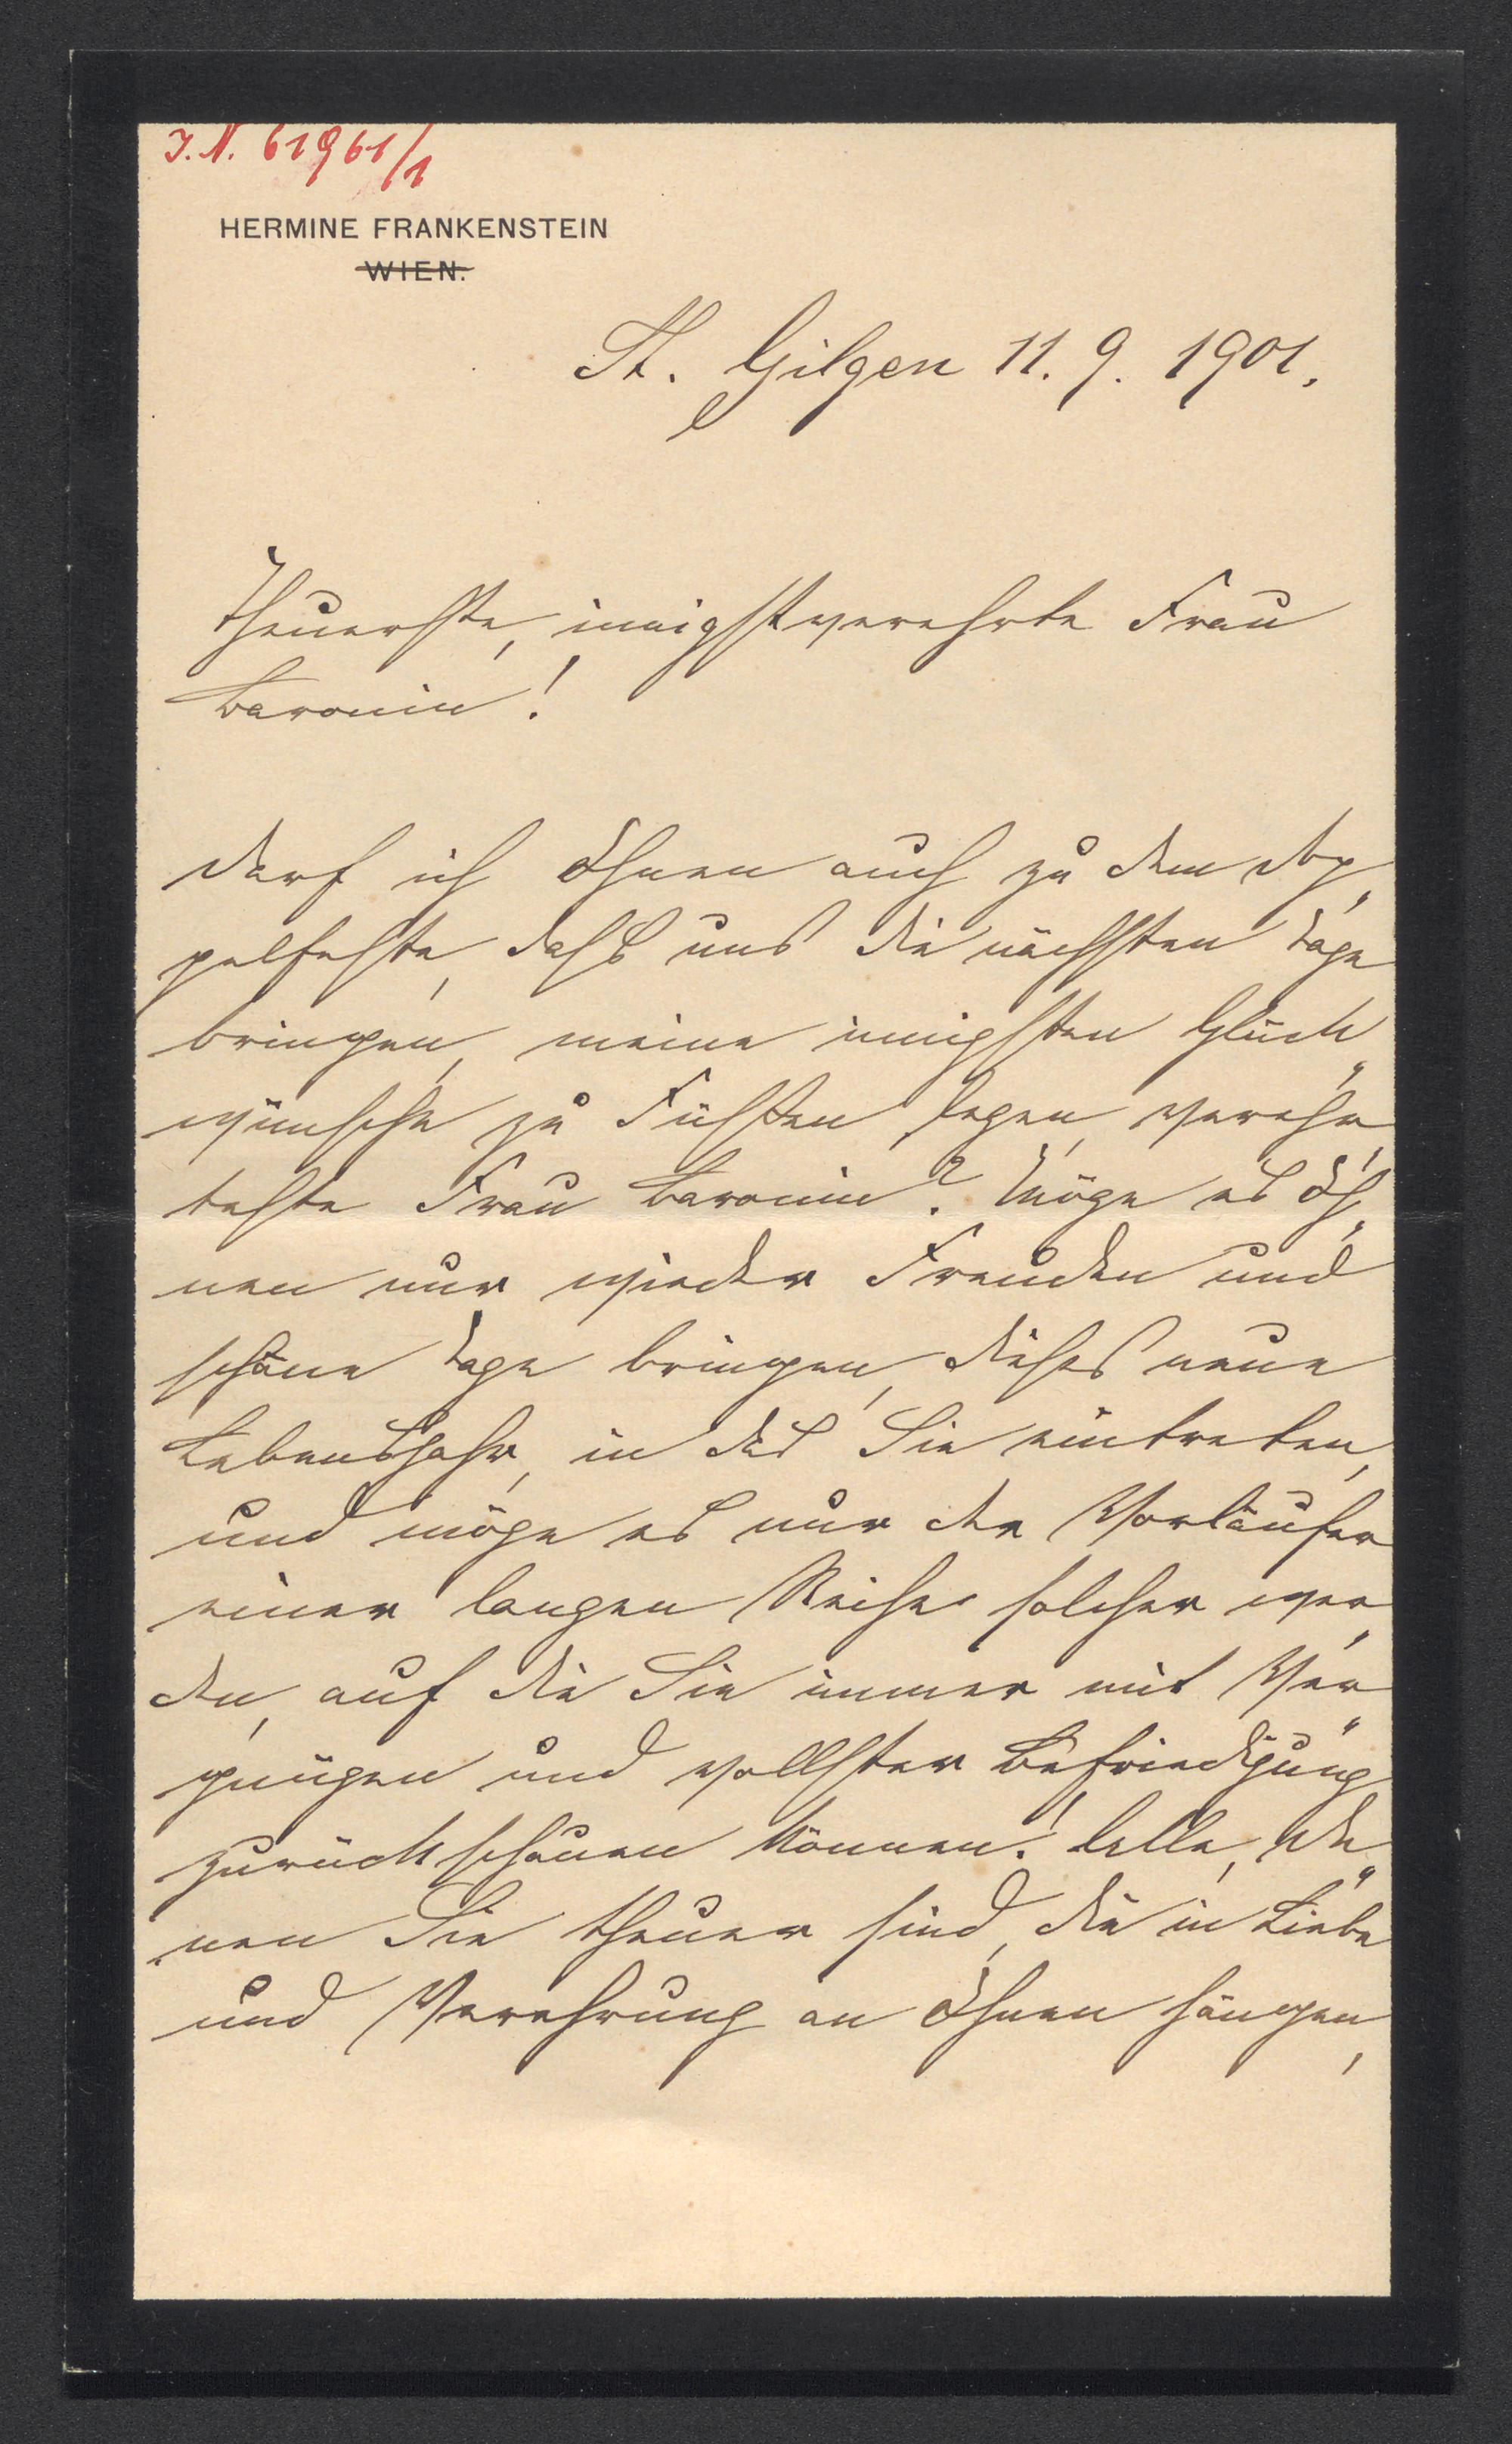 J. N. 61961/1
HERMINE FRANKENSTEIN
WIEN.
St. Gilgen 11. 9. 1901.
Theuerste, innigstverehrte Frau
Baronin!
Darf ich Ihnen auch zu dem Dop„
pelfeste, dass uns die nächsten Tage
bringen, meine innigsten Glück„
wünsche zu Füssen legen, verehr„
teste Frau Baronin? Möge es Ih„
nen nur wieder Freuden und
schöne Tage bringen, dieses neue
Lebensjahr, in das Sie eintreten,
und möge es nur der Vorläufer
einer langen Reihe solcher wer„
den, auf die Sie immer mit Ver„
gnügen und vollster Befriedigung
zurückschauen können! Alle, de„
nen Sie theuer sind, die in Liebe
und Verehrung an Ihnen hängen,